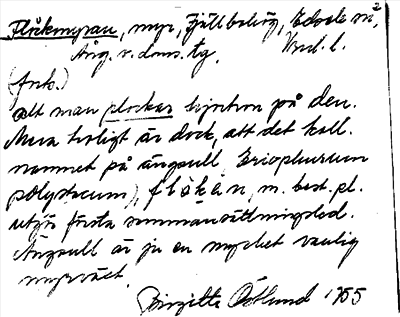 Flåkmyran, myr, Fjällboberg, Edsele sn,
Ång. v. dms. tg. Und. l.
(forts.)
att man plockar hjortron på den.
Mera troligt är dock, att det koll.
namnet på ängsull, Eriophorum
polystacum), flåkån, m. best. pl.
utgör första sammansättningsled.
Ängsull är ju en mycket vanlig
myrväxt.
Birgitta Östlund 1955